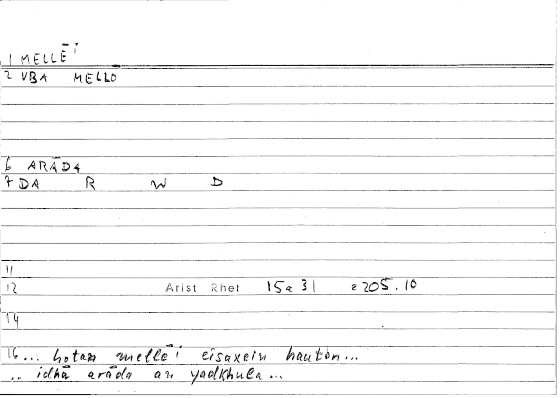 1 MELLĒI
2 VBA MELLO
6 ARĀDA
7 DA R W D
11
12 Arist Rhet 15a31 =205.10
14
16... hotan mellēi eisaxein hauton...
.. idhā arāda an yadkhula...